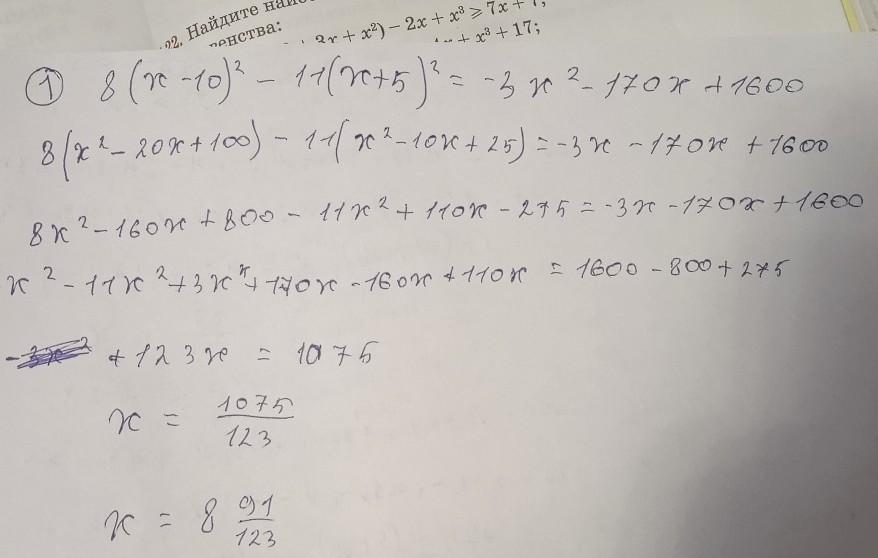 22. Найдите
венства:
3x + x²) − 2x + x³ ⩾ 7x +
+ x³ + 17;
① 8(x −10)² − 11(x+5)² = −3x² − 170x + 1600
8(x² − 20x + 100) − 11(x² −10x + 25) = −3x − 170x + 1600
8x² − 160x + 800 − 11x² + 110x − 275 = −3x − 170x + 1600
x² − 11x² + 3x² + 170x − 160x + 110x = 1600 − 800 + 275
+ 123x = 1075
x = 1075/123
x = 8 91/123